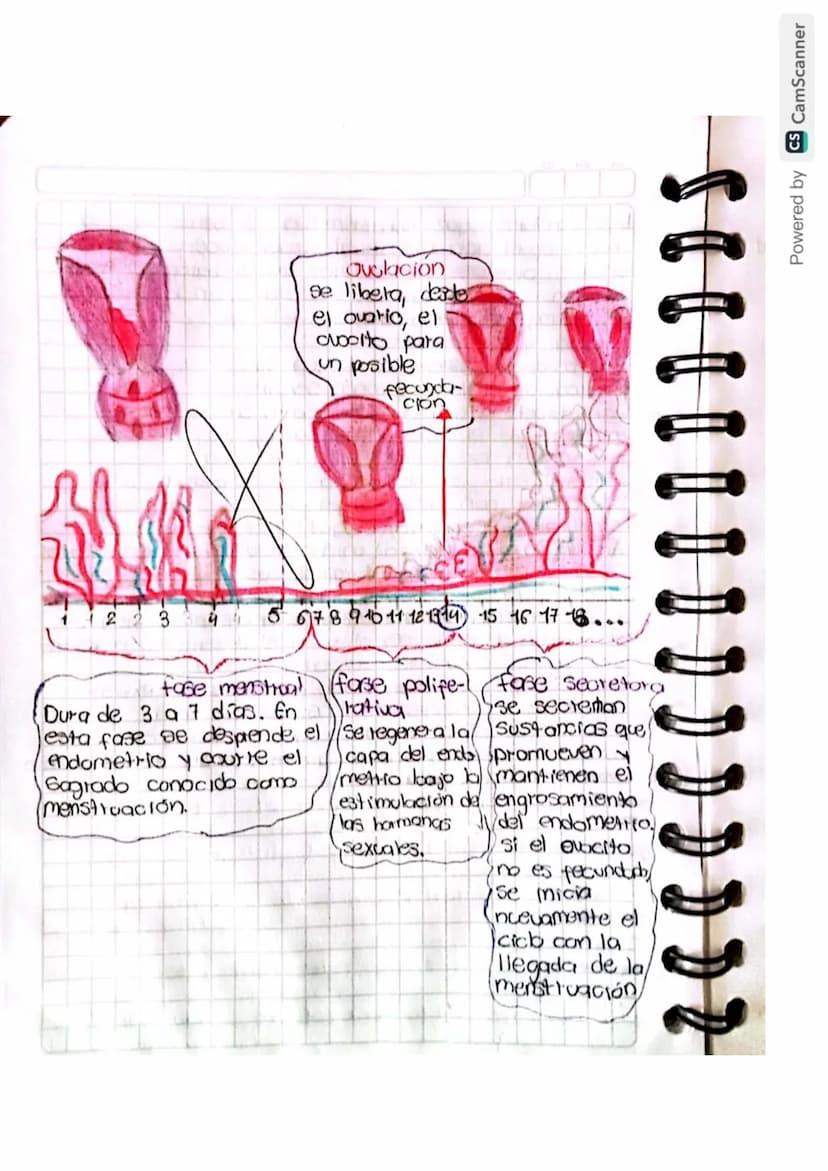 ovulación
se libera, desde
el ovario, el
ovocito para
un posible
fecunda-
ción
1 2 3 4 5 6 7 8 9 10 11 12 13 14 15 16 17 18...
fase menstrual
Dura de 3 a 7 días. En
esta fase se desprende el
endometrio y ocurre el
sagrado conocido como
menstruación.
fase polife-
rativa
se regenera la
capa del endo
metrio bajo la
estimulación de
las hormonas
sexuales.
fase secretora
se secretan
sustancias que
promueven y
mantienen el
engrosamiento
del endometrio.
si el ovocito
no es fecundado,
se inicia
nuevamente el
ciclo con la
llegada de la
menstruación
Powered by CS CamScanner